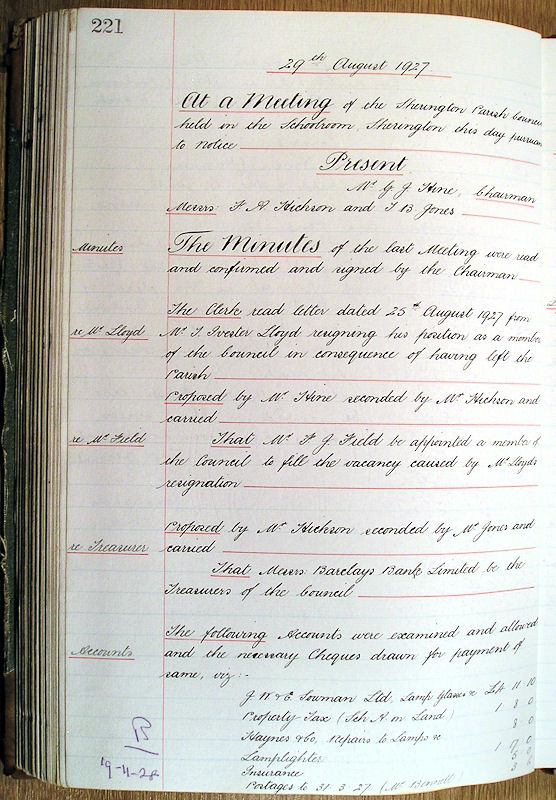 221
29th August 1927
At a Meeting of the Sherington Parish Council
held in the Schoolroom, Sherington this day pursuant
to notice
Present
Mr G J Hine, Chairman
Messrs F A Hickson and J B Jones
Minutes
The Minutes of the last Meeting were read
and confirmed and signed by the Chairman
The Clerk read letter dated 25th August 1927 from
re Mr Lloyd
Mr T Ivester Lloyd resigning his position as a member
of the Council in consequence of having left the
Parish
Proposed by Mr Hine seconded by Mr Hickson and
carried
re Mr Field
That Mr F J Field be appointed a member of
the Council to fill the vacancy caused by Mr Lloyds
resignation
Proposed by Mr Hickson seconded by Mr Jones and
re Treasurer
carried
That Messrs Barclays Bank Limited be the
Treasurers of the Council
The following Accounts were examined and allowed
Accounts
and the necessary Cheques drawn for payment of
same, viz:-
J W & E Sowman Ltd, Lamp Glasses &c £4 11 10
Property Tax (Sch A on Land) 1 8 0
Haynes & Co, repairs to Lamps &c 8 0
Lamplighter 1 17 0
Insurance 5 0
Postages to 31.3.27 (Mr Bennell) 3 6
19-11-28